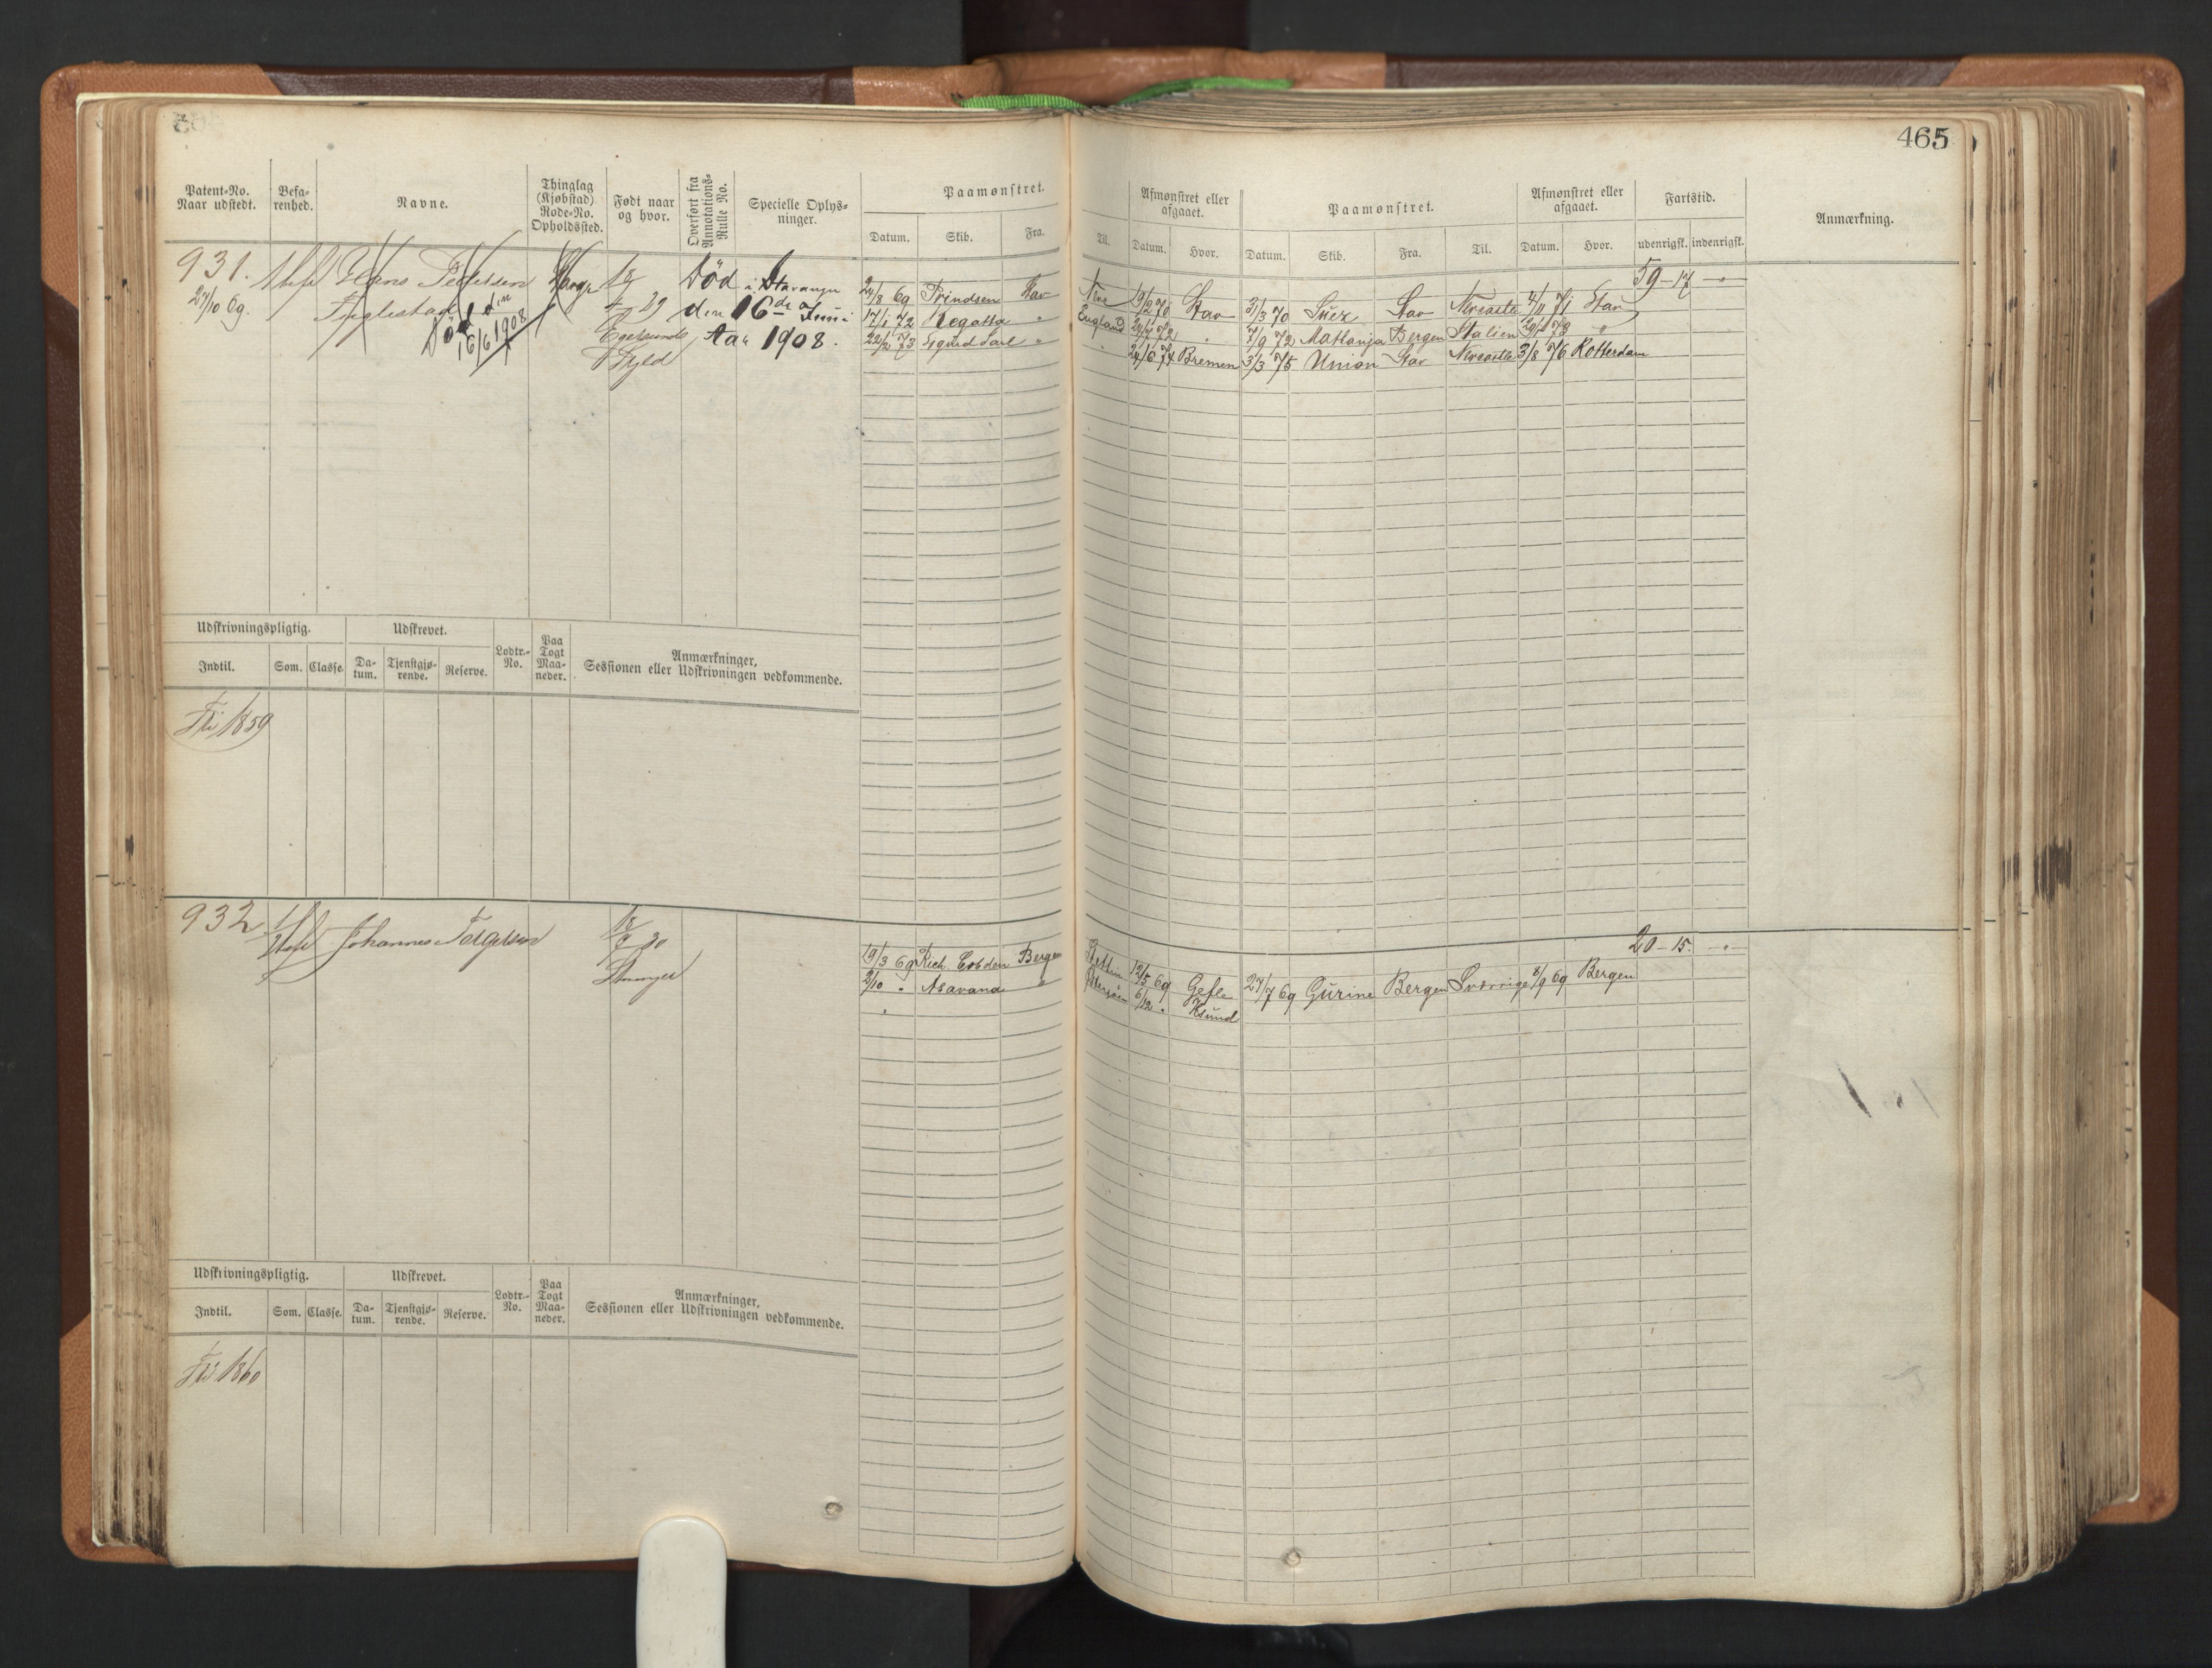 465
Patent-No. Naar udstedt.
Befarenhed.
Navne.
Thinglag (Kjøbstad) Rode-No. Opholdssted.
Født naar og hvor.
Overført fra Annotations-Rulle No.
Specielle Oplysninger.
Paamønstret.
Datum. Skib. Fra. Til.
Afmønstret eller afgaaet.
Datum. Hvor.
Paamønstret.
Datum. Skib. Fra. Til.
Afmønstret eller afgaaet.
Datum. Hvor.
Fartstid.
udenrigsk. indenrigsk.
Anmærkning.
931.
27/10 69.
Hans Pedersen
Død den
16/6 1908
29
Egersunds
Død i Stavanger
den 16de Juni
Aar 1908.
59-17 -"-
24/8 69 Prindsen Stav New 19/2 70 Stav 31/3 70 Suez Stav Newcastle 4/11 71 Stav
17/1 72 Regatta " England 24/7 72 " 7/9 72 Bergen Italien "
22/2 73 " " 24/6 74 Bremen 3/3 75 Union Stav Newcastle 3/8 76 Rotterdam
Udskrivningspligtig. Udskrevet. Lodtr.-No. Paa Togt Maaneder. Anmærkninger, Sessionen eller Udskrivningen vedkommende.
Indtil. Som. Classe. Datum. Tjenstgjørende. Reserve.
Fri 1859
932
Johannes
9 30
20-15. -"-
19/3 69 Rich. Cobden Bergen Stettin 12/5 69 Gefle 27/7 69 Gurine Bergen Sverrige 8/9 69 Bergen
2/10 " " Østersøen 6/12 " Ksund
Udskrivningspligtig. Udskrevet. Lodtr.-No. Paa Togt Maaneder. Anmærkninger, Sessionen eller Udskrivningen vedkommende.
Indtil. Som. Classe. Datum. Tjenstgjørende. Reserve.
Fri 1860